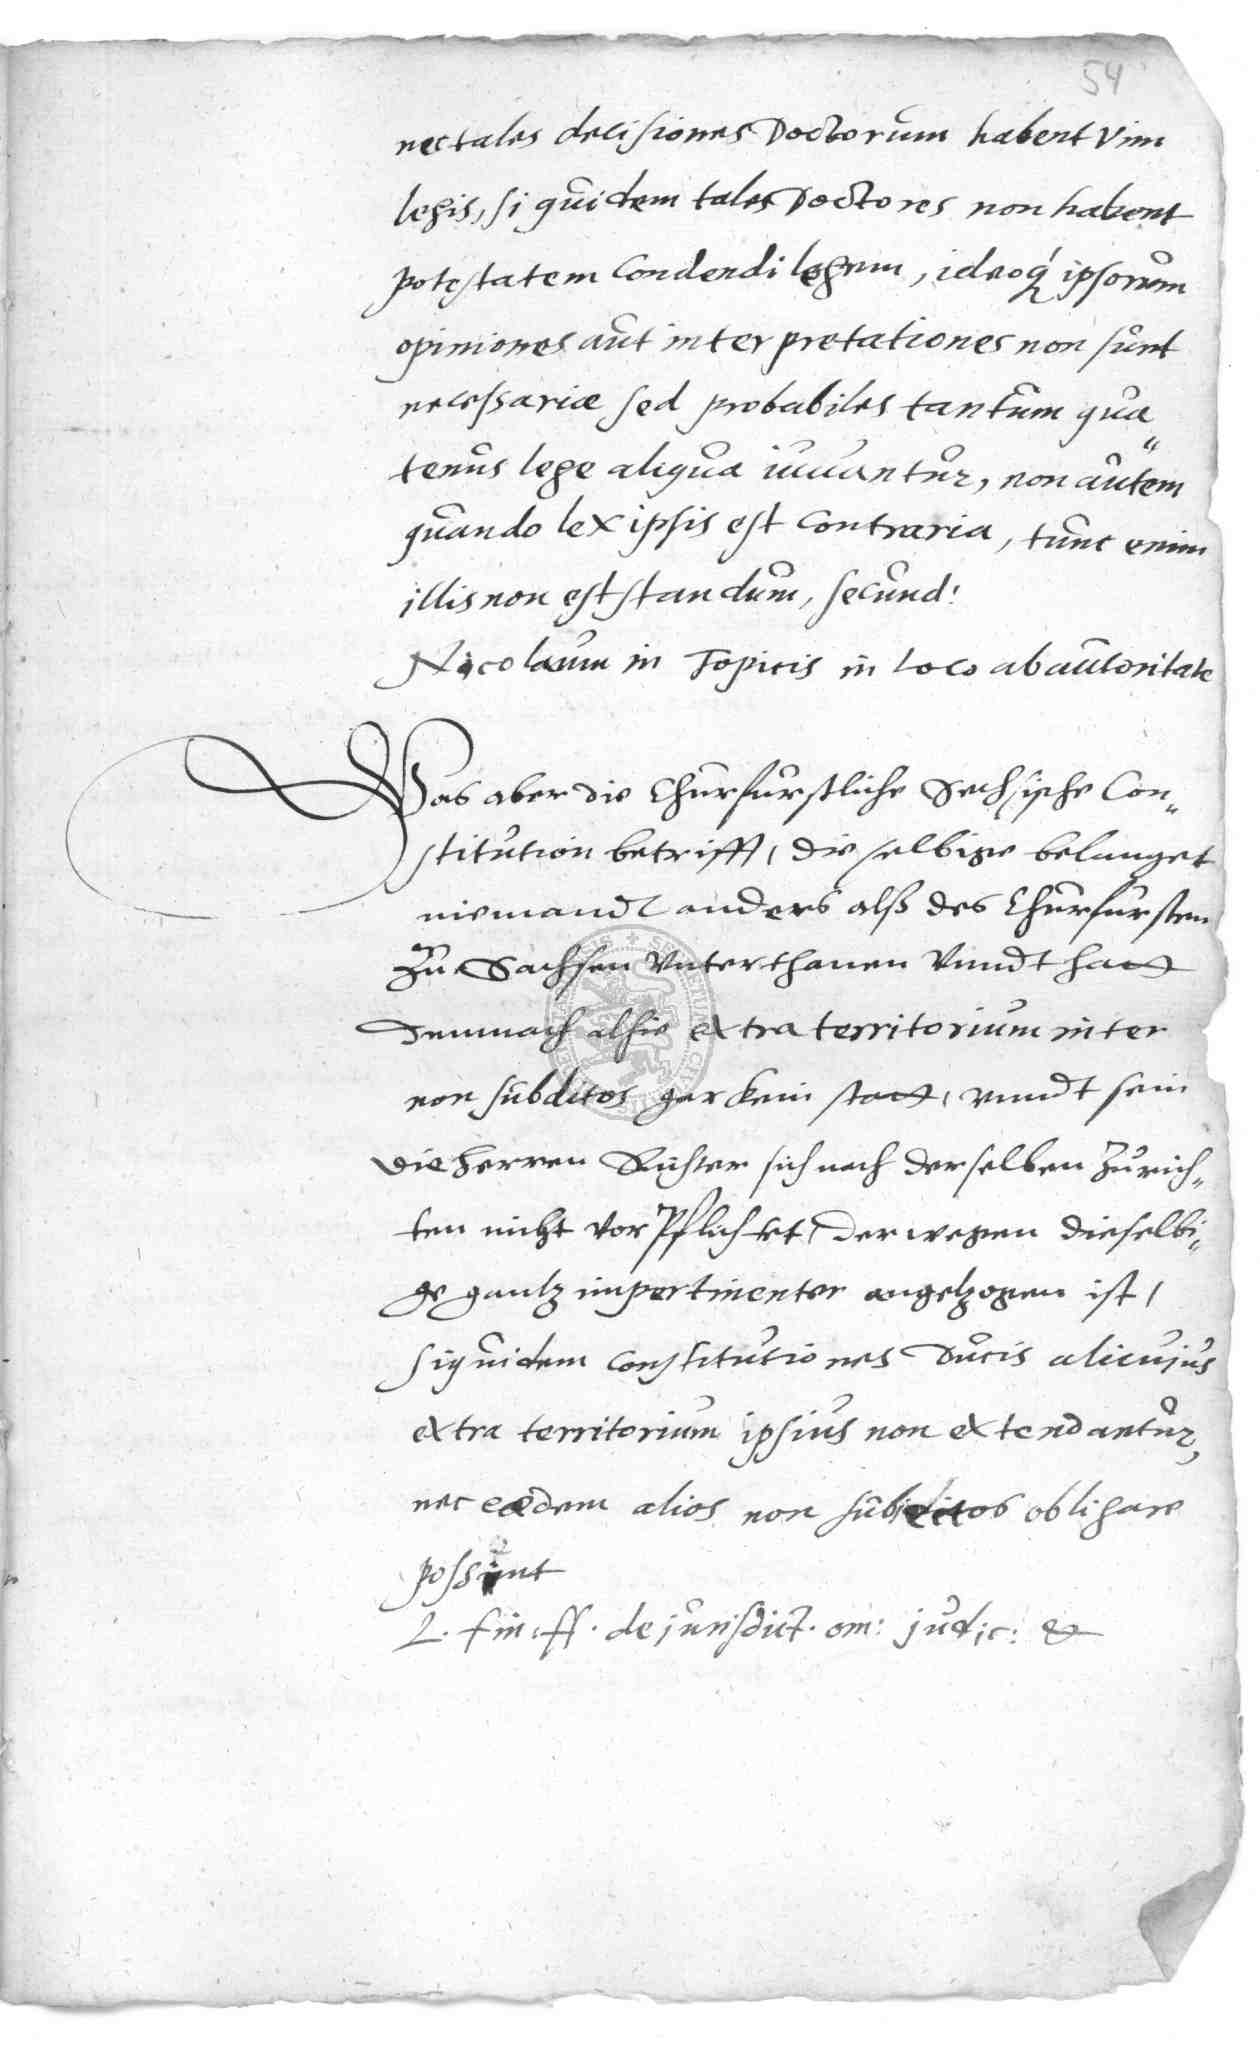 54
nec tales decisiones Doctorum habent vim
legis, si quidem tales Doctores non habent
potestatem condendi legem, ideoq́ ipsorum
opiniones aut interpretationes non sunt
necessariæ sed probabiles tantum qua„
tenus lege aliqua iuvantur, non autem
quando lex ipsis est contraria, tunc enim
illis non est standum, secund:
Nicolaum in Topicis in loco ab autoritate
Was aber die Churfurstliche Sechsische Con„
stitution betrifft, die selbige belanget
niemandt anders alß des Churfursten
Zu Sachsen Unterthanen Vnndt hatt
demnach alhie extra territorium inter
non subditos gar kein statt, vnndt sein
die Herren Richter sich nach derselben Zurich„
ten nicht vor Pflichtet, derwegen dieselbi„
ge gantz impertinenter angetzogen ist,
siquidem constitutiones Ducis alicujus
extra territorium ipsius non extendantur,
nec eædem alios non subditos obligare
possunt
L. fin: ff. de jurisdict. om: judic: &